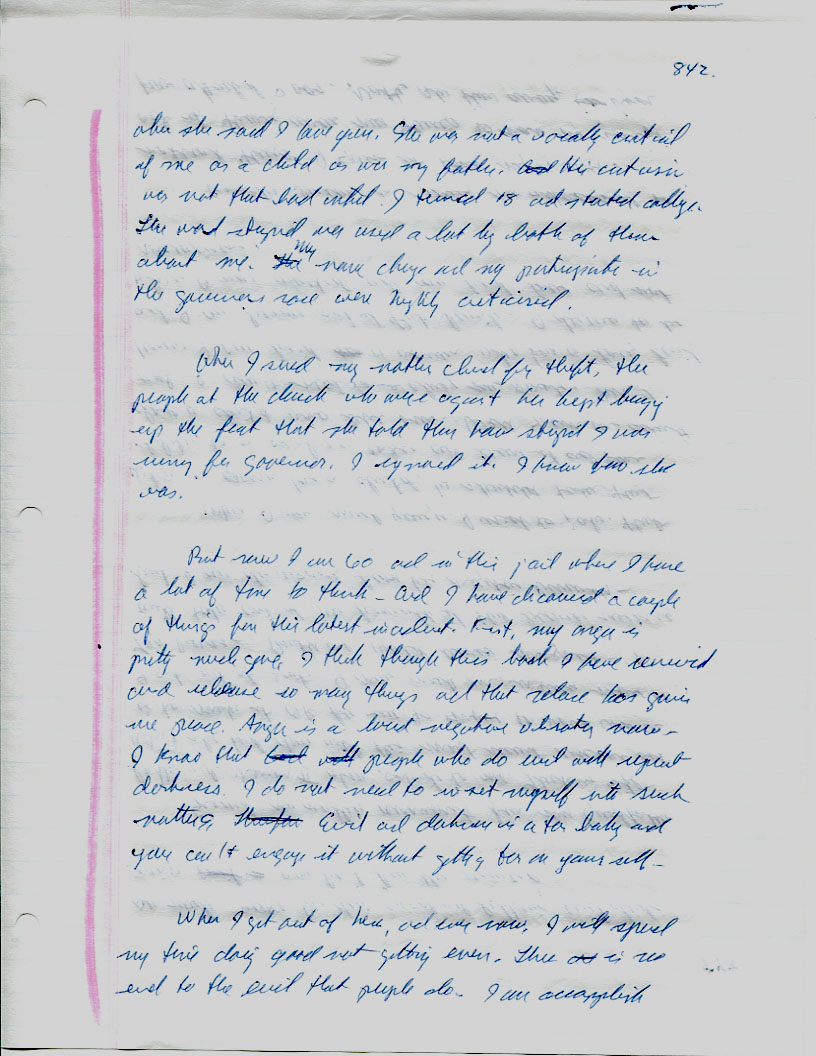 842.
when she said I love you. She was not a vocally critical
of me as a child as was my father. And His criticism
was not that bad until I turned 18 and started college.
The word stupid was used a lot by both of them
about me. The My name change and my participate in
the governors race were highly criticised.
When I sued my mother church for theft, the
people at the church who were against her kept bringing
up the fact that she told them how stupid I was
running for governor. I ignored it. I knew how she
was.
But now I am 60 and in this jail where I have
a lot of time to think - and I have discovered a couple
of things from this latest incident. First, my anger is
pretty much gone. I think though this book I have removed
and release so many things and that release has given
me peace. Anger is a loud negative vibration now -
I know that people who do evil will repeat
darkness. I do not need to insert myself into such
matters. Evil and darkness is a tar baby and
you can't engage it without getting tar on yourself -
When I get out of here, and even now, I will spend
my time doing good not getting even. There is no
end to the evil that people do - I can accomplish